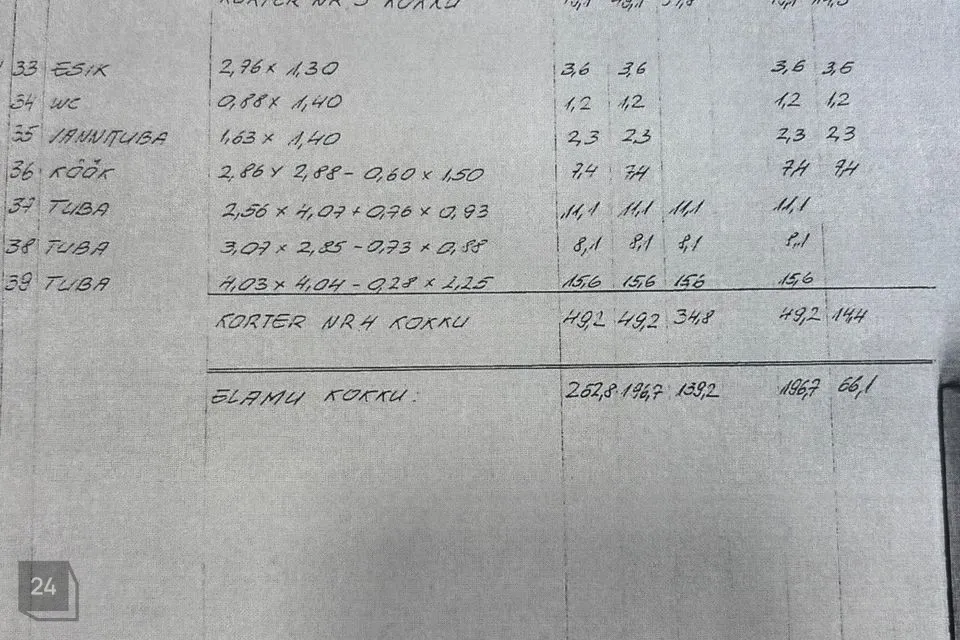 KORTER NR 3 KOKKU
33 ESIK 2,76 x 1,30 3,6 3,6 3,6 3,6
34 WC 0,88 x 1,40 1,2 1,2 1,2 1,2
35 VANNITUBA 1,63 x 1,40 2,3 2,3 2,3 2,3
36 KÖÖK 2,86 x 2,88 - 0,60 x 1,50 7,4 7,4 7,4 7,4
37 TUBA 2,56 x 4,07 + 0,76 x 0,93 11,1 11,1 11,1 11,1
38 TUBA 3,07 x 2,85 - 0,73 x 0,88 8,1 8,1 8,1 8,1
39 TUBA 4,03 x 4,04 - 0,28 x 2,25 15,6 15,6 15,6 15,6
KORTER NR 4 KOKKU 49,2 49,2 34,8 49,2 14,4
ELAMU KOKKU: 262,8 196,7 139,2 196,7 66,1
24